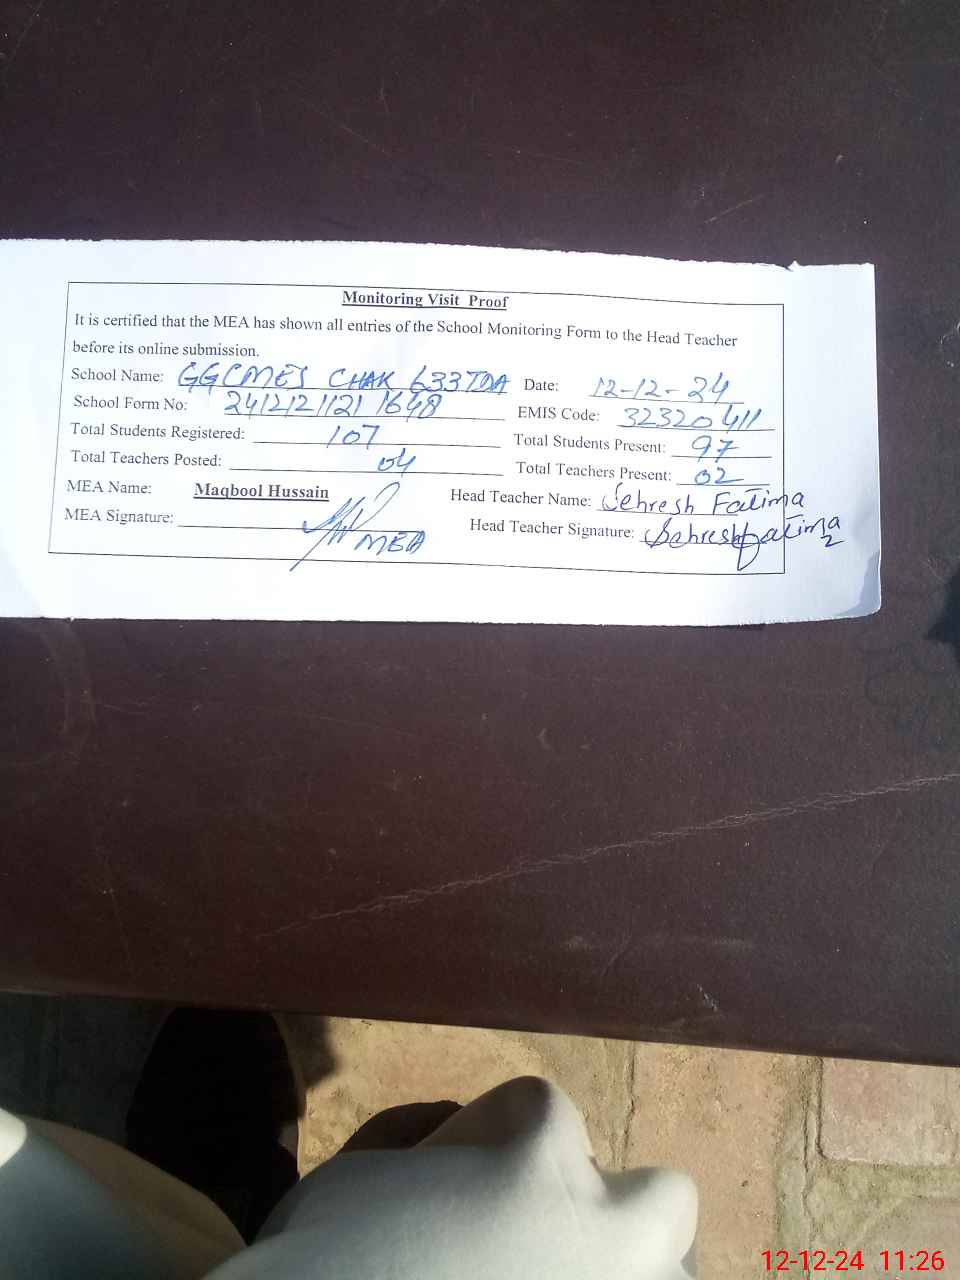 Monitoring Visit Proof
It is certified that the MEA has shown all entries of the School Monitoring Form to the Head Teacher
before its online submission.
School Name: GGCMES CHAK 633TDA Date: 12-12-24
School Form No: 24121211211648 EMIS Code: 32320411
Total Students Registered: 107 Total Students Present: 97
Total Teachers Posted: 04 Total Teachers Present: 02
MEA Name: Maqbool Hussain Head Teacher Name: Sehresh Fatima
MEA Signature: MEA Head Teacher Signature: Sehresh Fatima
12-12-24 11:26